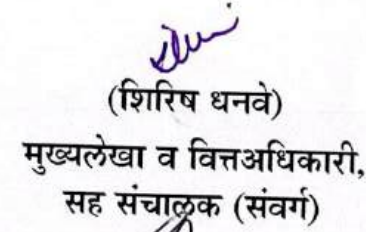 (शिरिष धनवे)
मुख्यलेखा व वित्तअधिकारी,
सह संचालक (संवर्ग)